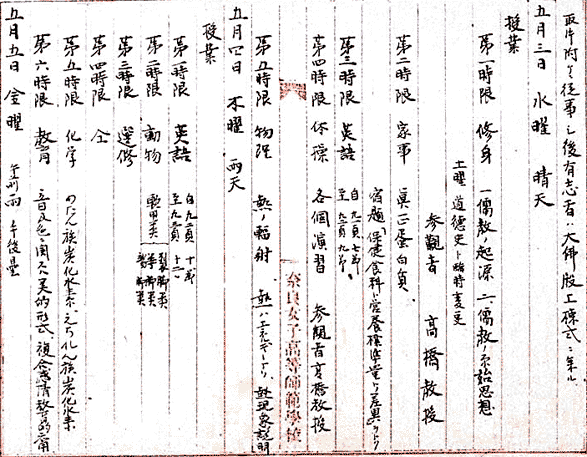 取片附ケ従事シ後有志者ハ大佛殿上棟式ニ参ル
五月三日 水曜 晴天
授業
第一時限 修身 一儒教ノ起源 二、儒教ノ原始思想
土曜 道徳史ト臨時変更
参観者 高橋教授
第二時限 家事 真正蛋白質
宿題 保健食料ト営養標準量
第三時限 英語 自九一頁七節
至九二頁九節
第四時限 体操 各個演習 参観者高橋教授
奈良女子高等師範學校
第五時限 物理 熱ノ輻射 熱ハエネルギーナリ、熱現象説明
五月四日 木曜 雨天
授業
第一時限 英語 自九二頁十節
至九五頁十二
第二時限 動物 軟甲類
裂脚類
等脚類
第三時限 選修
第四時限 仝
第五時限 化学 めたん族炭化水素、えちれん族炭化水素
第六時限 教育 音及色ニ関スル美的形式、複合感情
五月五日 金曜 午前雨 午後曇